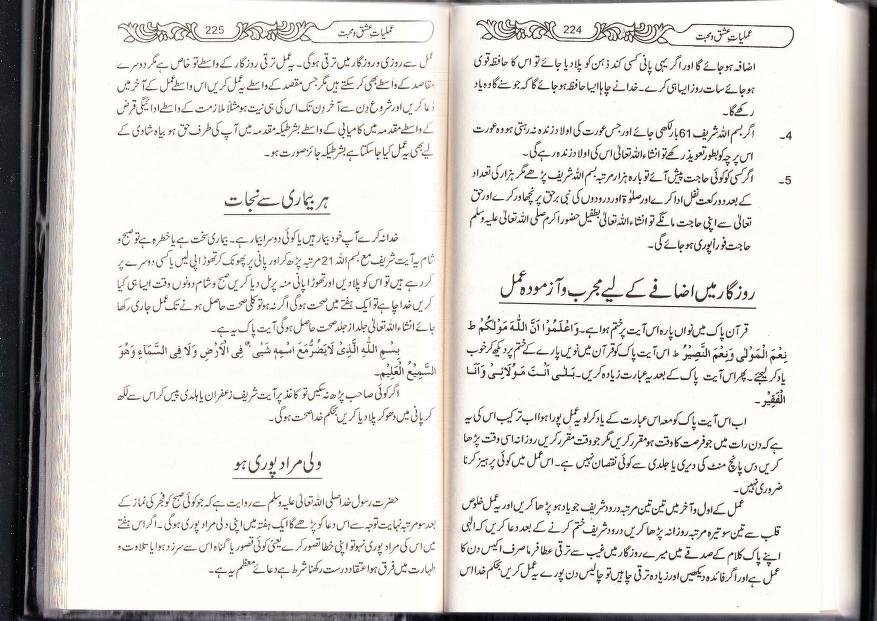 عملیات عشق و محبت
224
اضافہ ہوجائے گا اور اگر یہی پانی کسی کند ذہن کو پلا دیا جائے تو اس کا حافظہ قوی
ہوجائے سات روز ایسا ہی کرے۔ خدا نے چاہا ایسا حافظہ ہوجائے گا کہ جو سنے گا وہ یاد
رکھے گا۔
4۔ اگر بسم اللہ شریف 61 بار لکھی جائے اور جس عورت کی اولاد زندہ نہ رہتی ہو وہ عورت
اس پرچہ کو بطور تعویذ رکھے تو انشاء اللہ تعالیٰ اس کی اولاد زندہ رہے گی۔
5۔ اگر کسی کو کوئی حاجت پیش آئے تو بارہ ہزار مرتبہ بسم اللہ شریف پڑھے مگر ہزار کی تعداد
کے بعد دو رکعت نفل ادا کرے اور صلوٰۃ اور درودوں کی نبی برحق پر نچھاور کرے اور حق
تعالیٰ سے اپنی حاجت مانگے تو انشاء اللہ تعالیٰ بطفیل حضور اکرم صلی اللہ تعالیٰ علیہ وسلم
حاجت فوراً پوری ہوجائے گی۔
روزگار میں اضافے کے لیے مجرب و آزمودہ عمل
قرآن پاک میں نواں پارہ اس آیت پر ختم ہوا ہے۔ وَاعْلَمُوْا اَنَّ اللّٰهَ مَوْلٰكُمْ ط
نِعْمَ الْمَوْلٰى وَنِعْمَ النَّصِيْرُ ط اس آیت پاک کو قرآن میں نویں پارے کے ختم پر دیکھ کر خوب
یاد کر لیجئے۔ پھر اس آیت پاک کے بعد یہ عبارت زیادہ کریں۔ بَلٰى اَنْتَ مَوْلَائِىْ وَاَنَا
الْفَقِيْر۔
اب اس آیت پاک کو معہ اس عبارت کے یاد کرلو یہ عمل پورا ہوا اب ترکیب اس کی یہ
ہے کہ دن رات میں جو فرصت کا وقت ہو مقرر کریں مگر جو وقت مقرر کریں روزانہ اسی وقت پڑھا
کریں دس پانچ منٹ کی دیری یا جلدی سے کوئی نقصان نہیں ہے۔ اس عمل میں کوئی پرہیز کرنا
ضروری نہیں۔
عمل کے اول و آخر میں تین تین مرتبہ درود شریف جو یاد ہو پڑھا کریں اور یہ عمل خلوص
قلب سے تین سو تیرہ مرتبہ روزانہ پڑھا کریں درود شریف ختم کرنے کے بعد دعا کریں کہ الٰہی
اپنے پاک کلام کے صدقے میں میرے روزگار میں غیب سے ترقی عطا فرما صرف اکیس دن کا
عمل ہے اور اگر فائدہ دیکھیں اور زیادہ ترقی چاہیں تو چالیس دن پورے یہ عمل کریں بحکم خدا اس
عملیات عشق و محبت
225
عمل سے روزی و روزگار میں ترقی ہوگی۔ یہ عمل ترقی روزگار کے واسطے تو خاص ہے مگر دوسرے
مقاصد کے واسطے بھی کرسکتے ہیں مگر جس مقصد کے واسطے یہ عمل کریں اس واسطے عمل کے آخر میں
دعا کریں اور شروع دن سے آخر دن تک اس کی ہی نیت ہو مثلاً ملازمت کے واسطے ادائیگی قرض
کے واسطے مقدمہ میں کامیابی کے واسطے بشرطیکہ مقدمہ میں آپ کی طرف حق ہو بیاہ شادی کے
لیے بھی یہ عمل کیا جاسکتا ہے بشرطیکہ جائز صورت ہو۔
ہر بیماری سے نجات
خدانہ کرے آپ خود بیمار ہیں یا کوئی دوسرا بیمار ہے۔ بیماری سخت ہے یا خطرہ ہے تو صبح و
شام یہ آیت شریف مع بسم اللہ 21 مرتبہ پڑھ کر اور پانی پر پھونک کر تھوڑا پی لیں یا کسی دوسرے پر
کر رہے ہیں تو اس کو پلا دیں اور تھوڑا پانی منہ پر مل دیا کریں صبح و شام دونوں وقت ایسا ہی کیا
کریں خدا چاہے تو ایک ہفتے میں صحت ہوگی اگر نہ ہو تو کلی صحت حاصل ہونے تک عمل جاری رکھا
جائے انشاء اللہ تعالیٰ جلد از جلد صحت حاصل ہوگی آیت پاک یہ ہے۔
بِسْمِ اللّٰهِ الَّذِىْ لَايَضُرُّ مَعَ اسْمِهٖ شَىْءٌ فِى الْاَرْضِ وَلَا فِى السَّمَآءِ وَهُوَ
السَّمِيْعُ الْعَلِيْمِ۔
اگر کوئی صاحب پڑھ نہ سکیں تو کاغذ پر آیت شریف زعفران یا ہلدی پیس کر اس سے لکھ
کر پانی میں دھو کر پلا دیا کریں بحکم خدا صحت ہوگی۔
ولی مراد پوری ہو
حضرت رسول خدا صلی اللہ تعالیٰ علیہ وسلم سے روایت ہے کہ جو کوئی صبح کو فجر کی نماز کے
بعد سو مرتبہ نہایت توجہ سے اس دعا کو پڑھے گا ایک ہفتہ میں اپنی دلی مراد پوری ہوگی۔ اگر اس ہفتے
میں اس کی مراد پوری نہ ہو تو اپنی خطا تصور کرے یعنی کوئی قصور یا گناہ اس سے سرزد ہوا یا تلاوت و
طہارت میں فرق ہوا عقائد درست رکھنا شرط ہے دعائے معظم یہ ہے۔